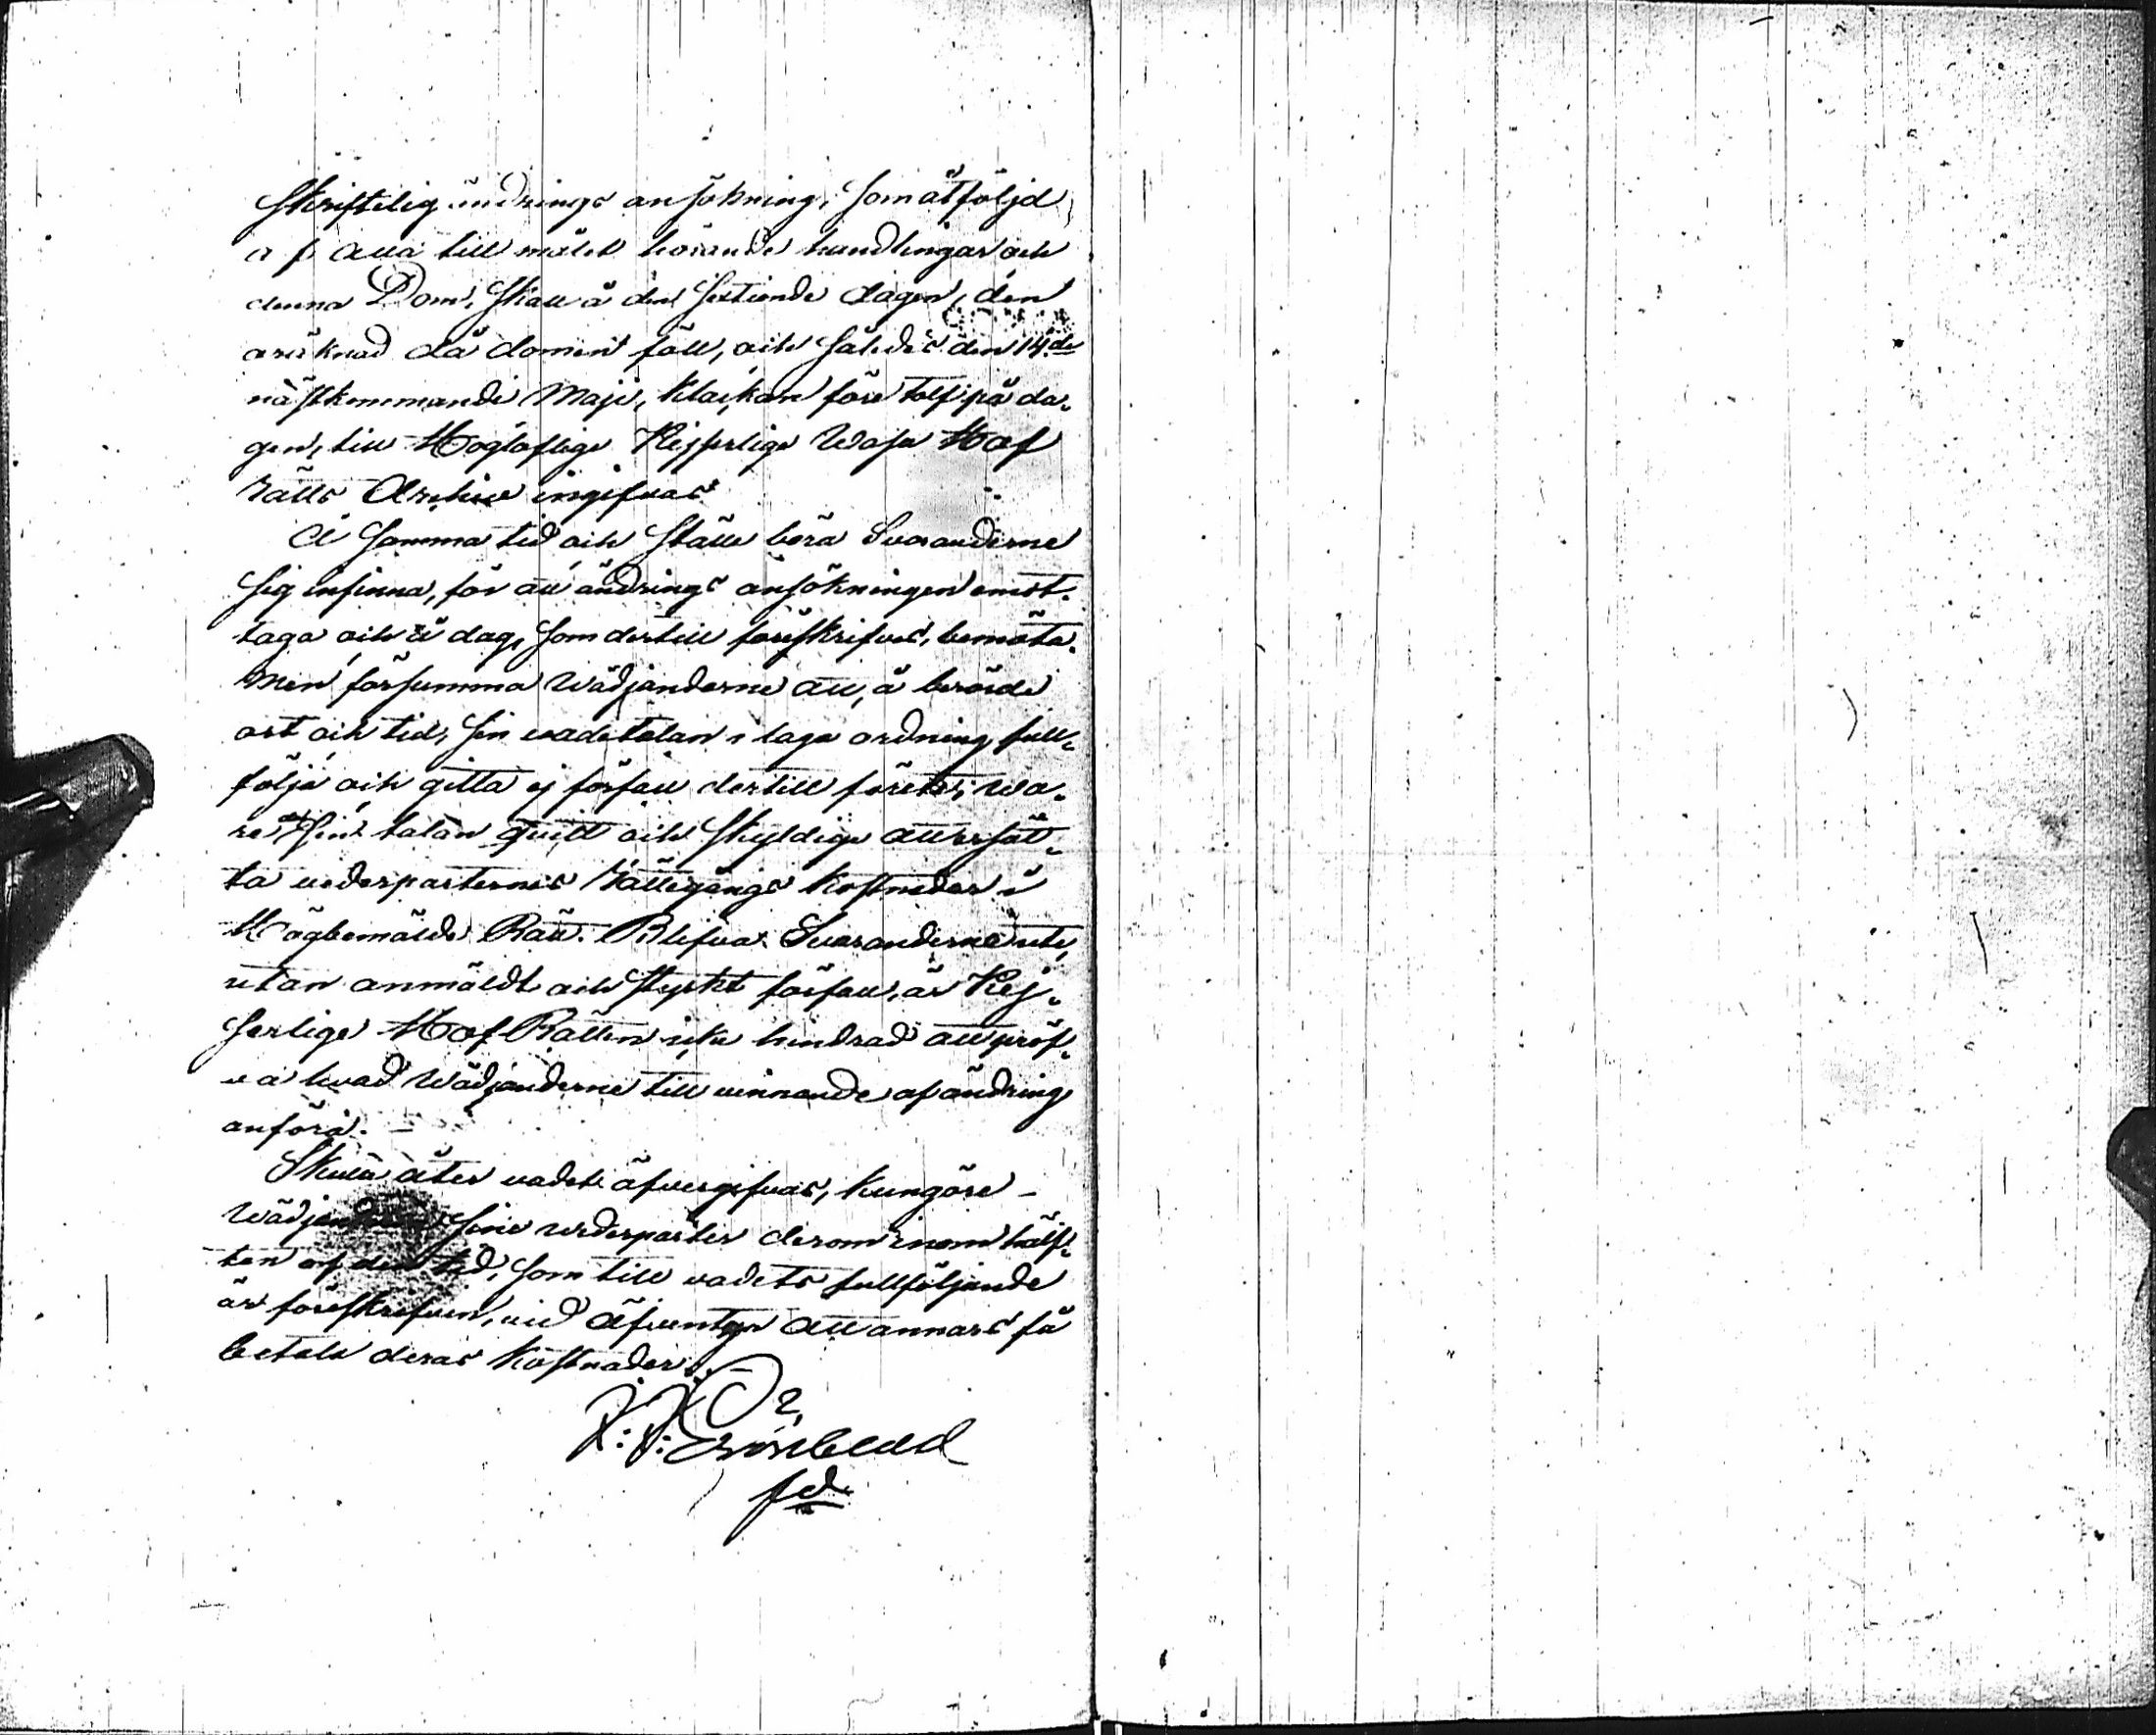 Skriftelig ändrings ansökning, som åtföljd
af alla till målet hörande handlingar och
denna Dom, skall å den sextionde dagen, den
oräknad då domen föll, och således den 14de
nästkommande Maji, klockan före tolf på da-
gen, till Högloflige Kejserlige Wasa Hof
Rätts Archiv ingifvas.
Å samma tid och ställe böra Svaranderne
sig infinna, för att ändrings ansökningen emot-
taga och å dag, som dertill föreskrifves, bemöta.
Men försumma Wädjanderne att, å berörde
ort och tid, sin vadetalan i laga ordning full-
följa och gitta ej förfall dertill förete; wa-
re sin talan qvitt och skyldige att ersät-
ta vederparternes Rättegångs kostnader i
Högbemälde Rätt. Blifva Svaranderne ute,
utan anmäldt och styrkt förfall, är Kej-
serlige Hof Rätten icke hindrad att pröf-
va hvad Wädjanderne till vinnande af ändring
anföra.
Skulle åter vadet öfvergifvas, kungöre
Wädjanderne sine vederparter derom inom hälf-
ten af den tid, som till vadets fullföljande
är föreskrifven, vid äfventyr att annars få
betala deras kostnader.